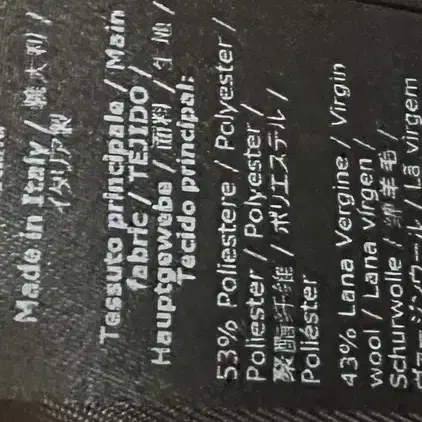 Made in Italy / 意大利 /
イタリア製
Tessuto principale / Main
fabric / TEJIDO /
Hauptgewebe / 面料 / 生地 /
Tecido principal:
53% Poliestere / Polyester /
Poliester / Polyester /
聚酯纤维 / ポリエステル /
Poliéster
43% Lana Vergine / Virgin
wool / Lana virgen /
Schurwolle / 绵羊毛 /
ヴァージンウール / Lã virgem